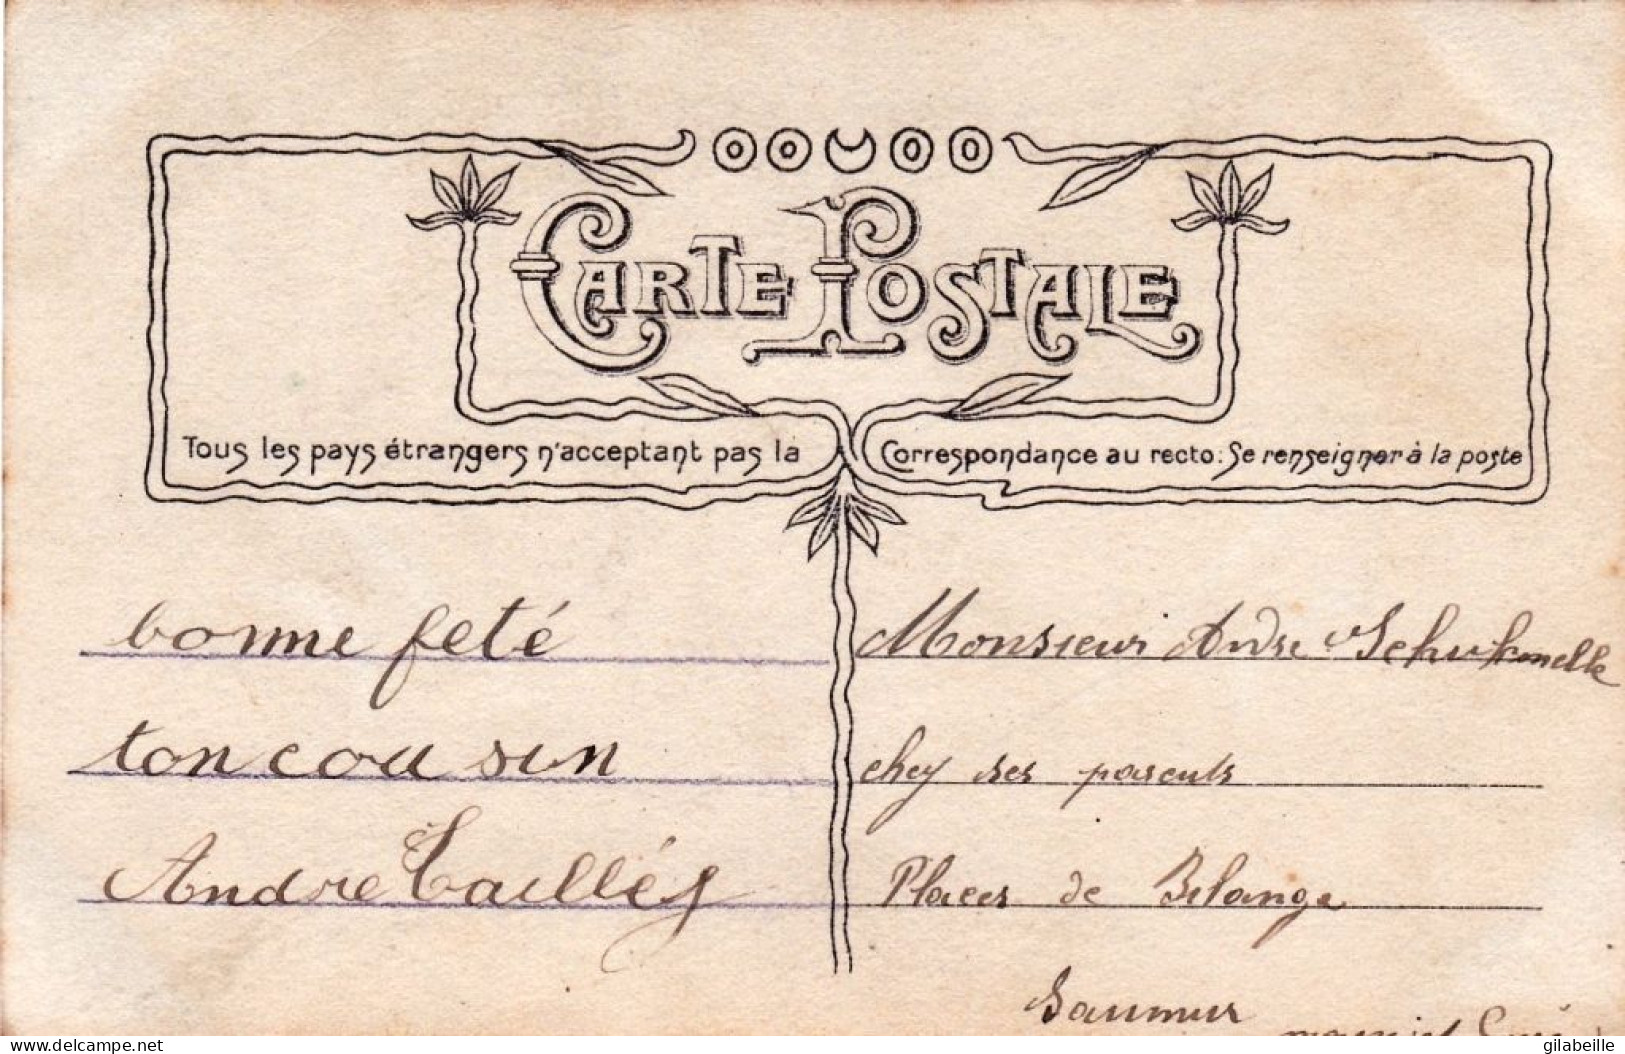 CARTE POSTALE
Tous les pays étrangers n'acceptant pas la Correspondance au recto: Se renseigner à la poste
bonne feté
ton cousin
Andre Taillés
Monsieur Andre
chez ses parents
Places de Bilange
Saumur
delcampe.net
gilabeille